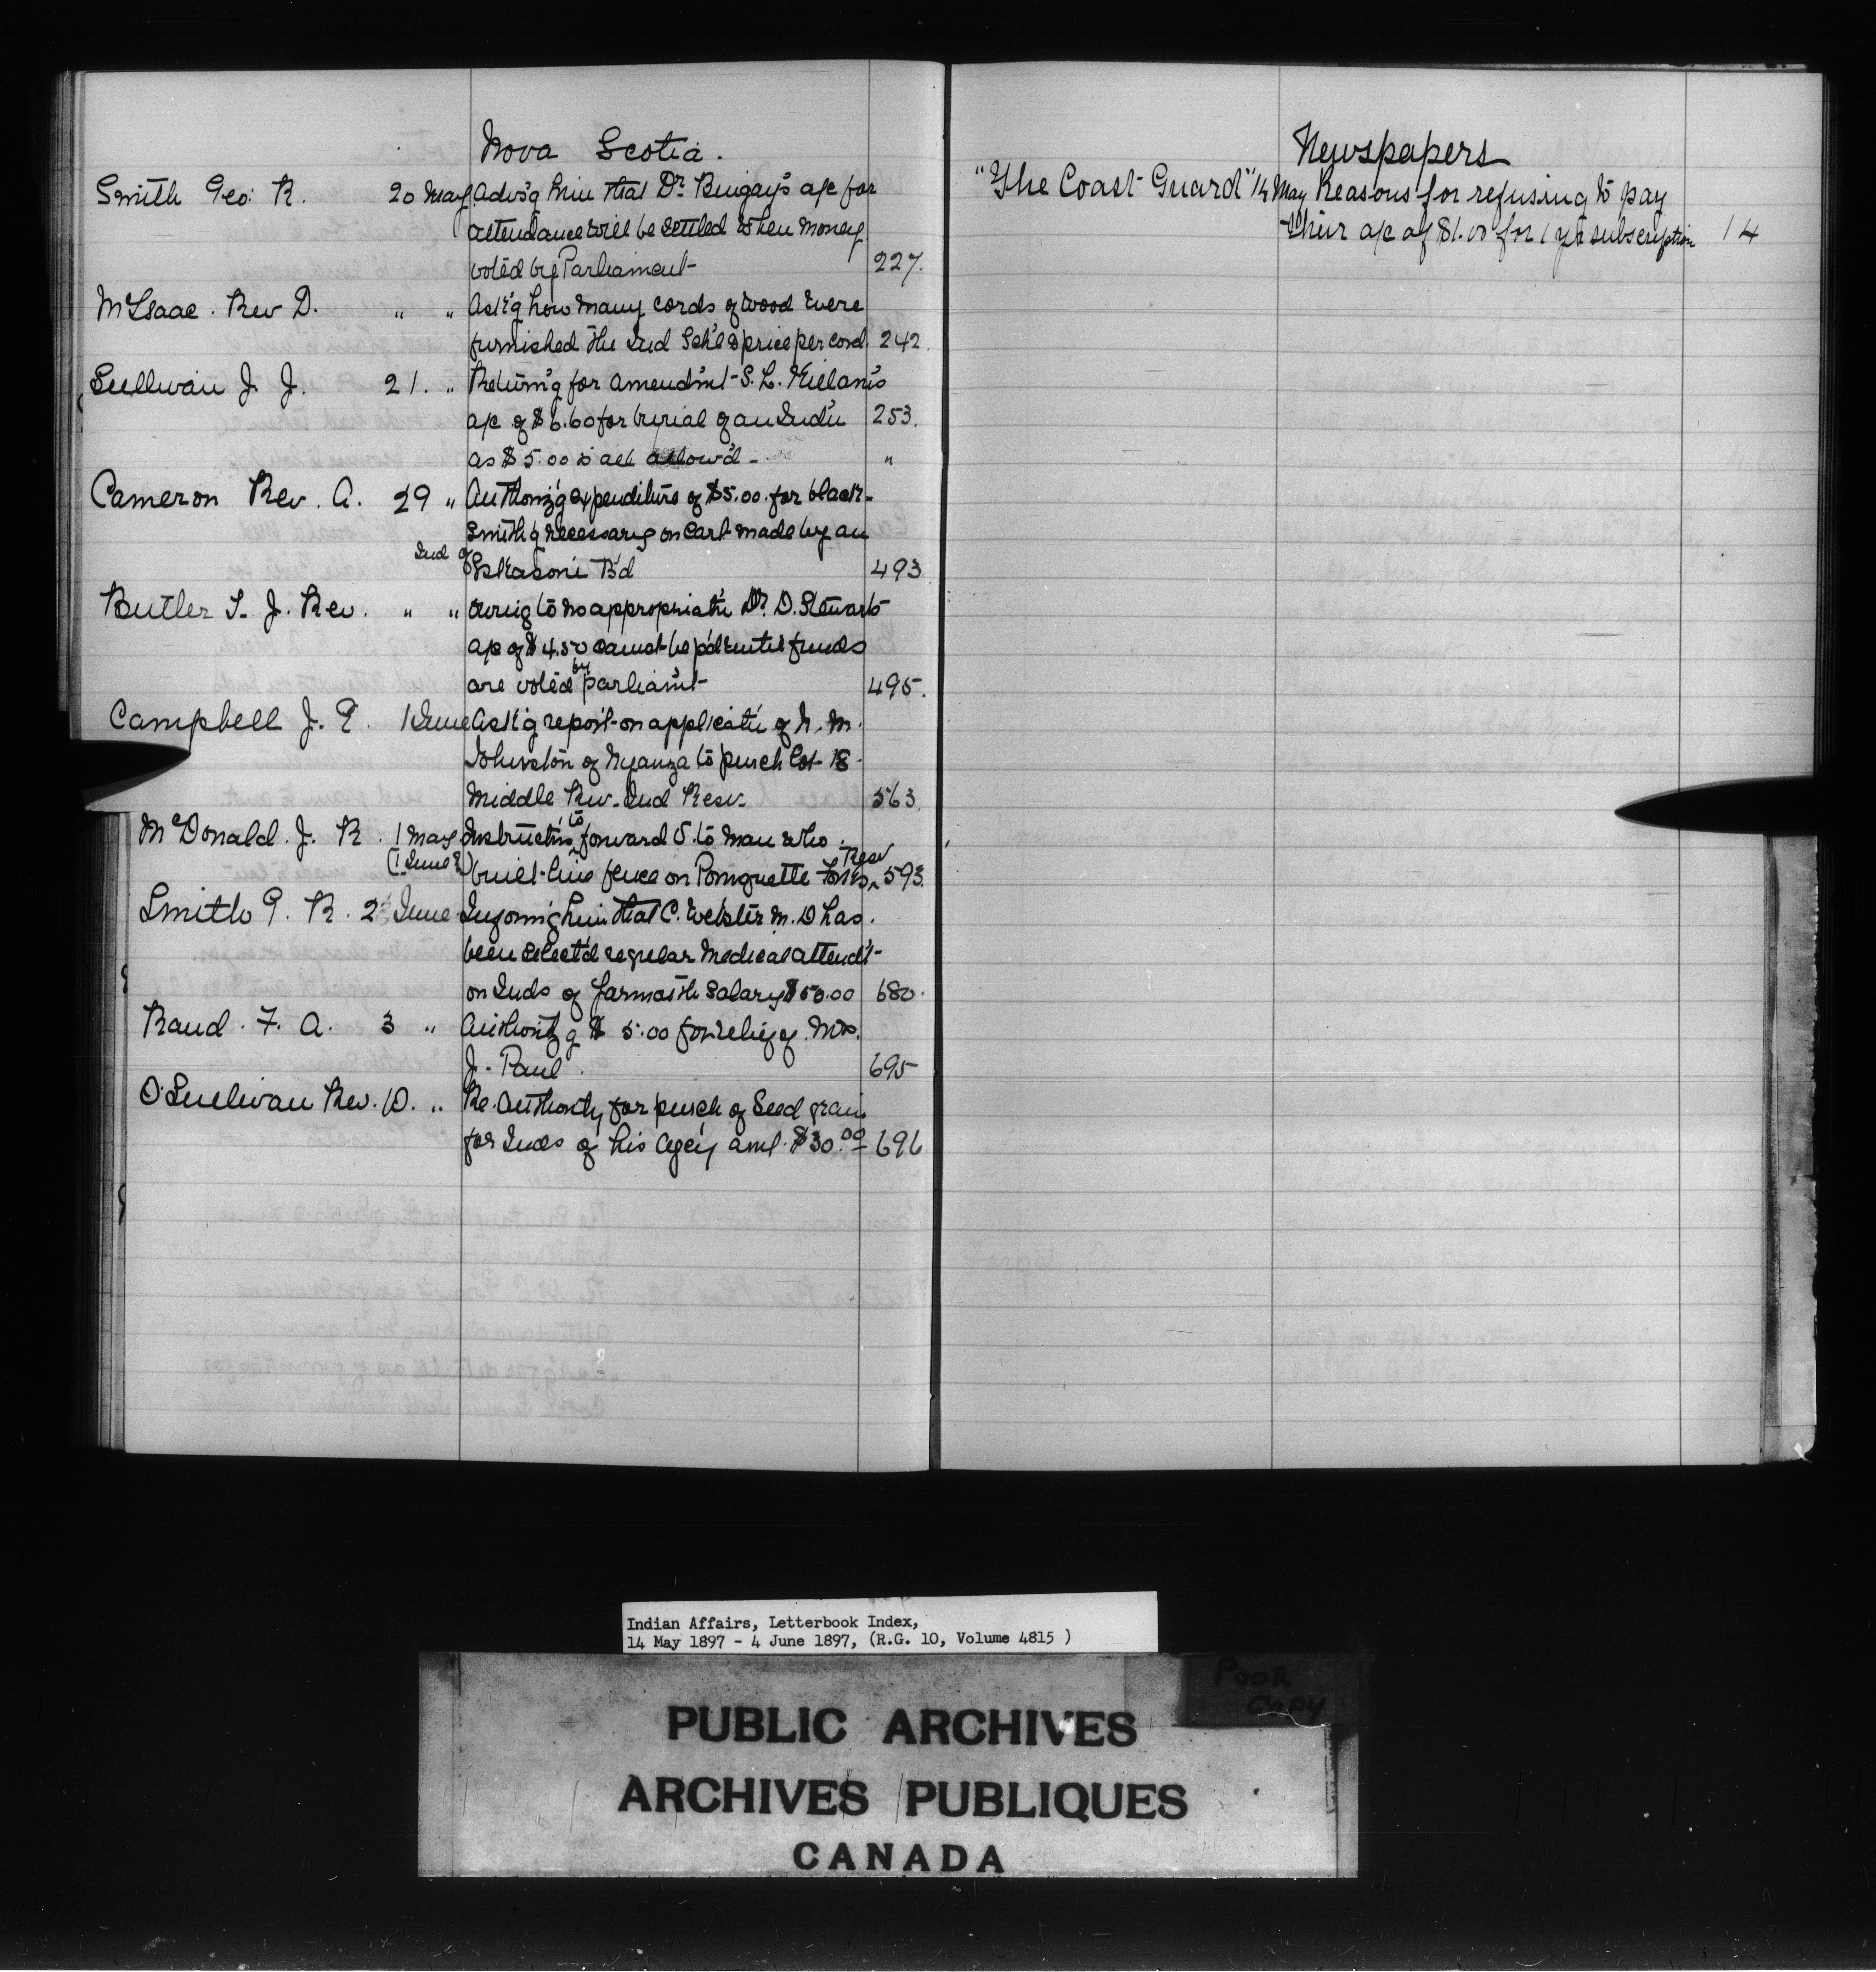 Nova Scotia.
Smith Geo. R. 20 May Advs'g him that Dr. Bingay's a/c for
attendance will be settled when money
voted by Parliament 227.
McIsaac. Rev D. " " Ask'g how many cords of wood were
furnished the Ind Sch'l & price per cord 242.
Sullivan J. J. 21. " Return'g for amendm't S. L. Killam's
a/c of $6.60 for burial of an Ind'n 253.
as $5.00 is all allow'd - "
Cameron Rev. A. 29 " Authoriz'g expenditure of $5.00 for black-
smith'g necessary on cart made by an
Ind of Eskasoni B'd 493
Butler T. J. Rev. " " Owing to no appropriat'n Dr. D. Stewart's
a/c of $4.50 cannot be p'd until funds
are voted by parliam't 495.
Campbell J. E. 1 June Ask'g report on applicat'n of N. M.
Johnston of Nyanza to purch Lot 18
Middle Riv. Ind Resv. 563.
McDonald. J. R. 1 May Instruct'ns to forward to man who
(1 June?) built line fence on Pomquette Resv 593.
Smith G. R. 2 June Inform'g him that C. Webster M.D has
been select'd regular medical attend't
on Inds of Yarmouth Salary $50.00 680.
Rand. F. A. 3 " Authoriz'g $ 5.00 for relief of Mrs.
J. Paul. 695
O'Sullivan Rev. D. " Re. Authority for purch of Seed grain
for Inds of his Agcy amt. $30.00 696
Newspapers
"The Coast Guard" 14 May Reasons for refusing to pay
their a/c of $1.00 for 1 yr subscription 14
Indian Affairs, Letterbook Index,
14 May 1897 - 4 June 1897, (R.G. 10, Volume 4815 )
POOR
COPY
PUBLIC ARCHIVES
ARCHIVES PUBLIQUES
CANADA